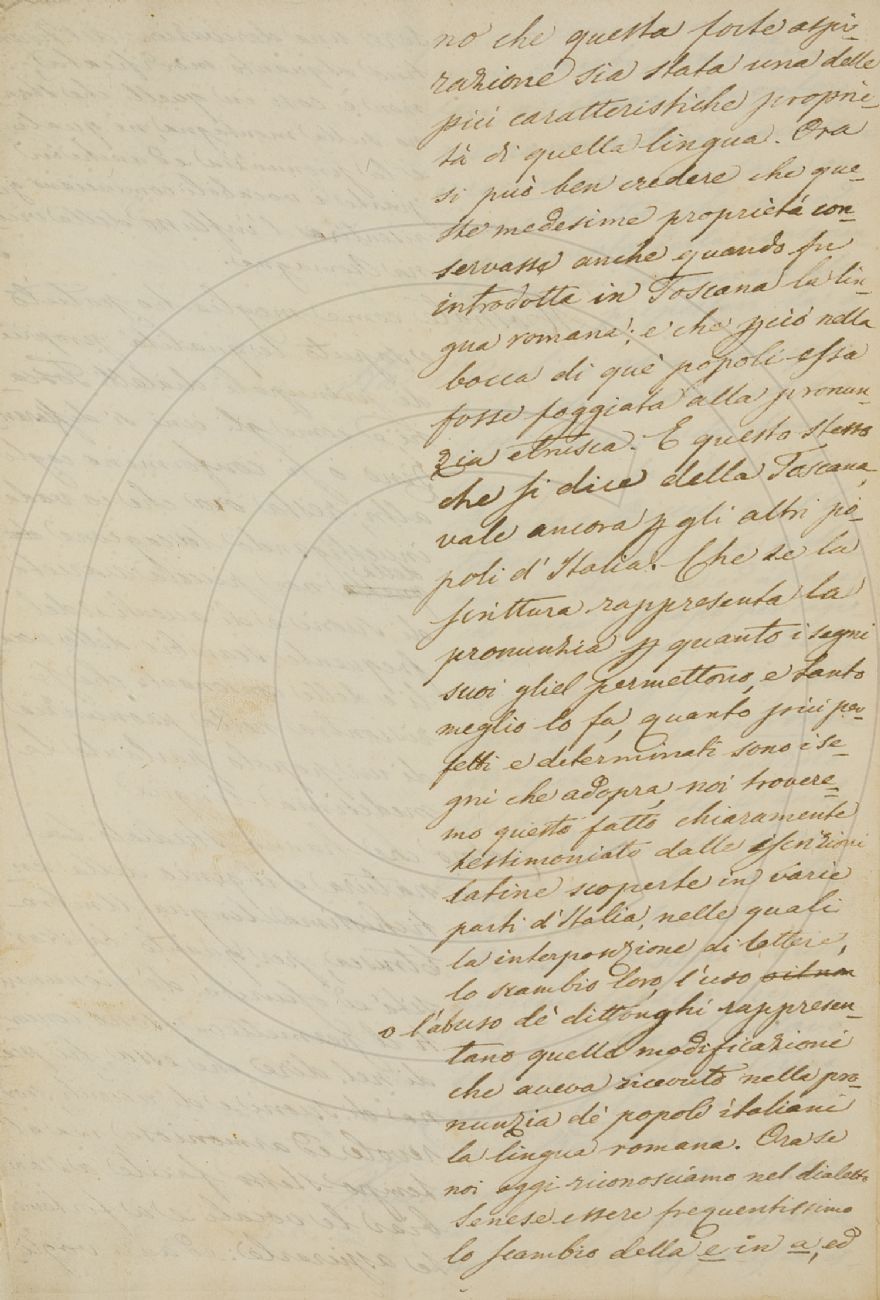 no che questa forte aspi-
razione sia stata una delle
più caratteristiche proprie-
tà di quella lingua. Ora
si può ben credere che que-
ste medesime proprietà con-
servasse anche quando fu
introdotta in Toscana la lin-
gua romana; e che pciò nella
bocca di que' popoli essa
fosse foggiata alla pronun-
zia etrusca. E questo stesso
che si dice della Toscana,
vale ancora p gli altri po-
poli d'Italia. Che se la
scrittura rappresenta la
pronunzia p quanto i segni
suoi gliel permettono, e tanto
meglio lo fa, quanto più per-
fetti e determinati sono i se-
gni che adopra, noi trovere-
mo questo fatto chiaramente
testimoniato dalle iscrizioni
latine scoperte in varie
parti d'Italia, nelle quali
la interposizione di lettere,
lo scambio loro, l'uso
o l'abuso de' dittonghi rappresen-
tano quelle modificazioni
che aveva ricevuto nella pro-
nunzia de' popoli italiani
la lingua romana. Ora se
noi oggi riconosciamo nel dialetto
Senese essere frequentissimo
lo scambio della e in a, ed